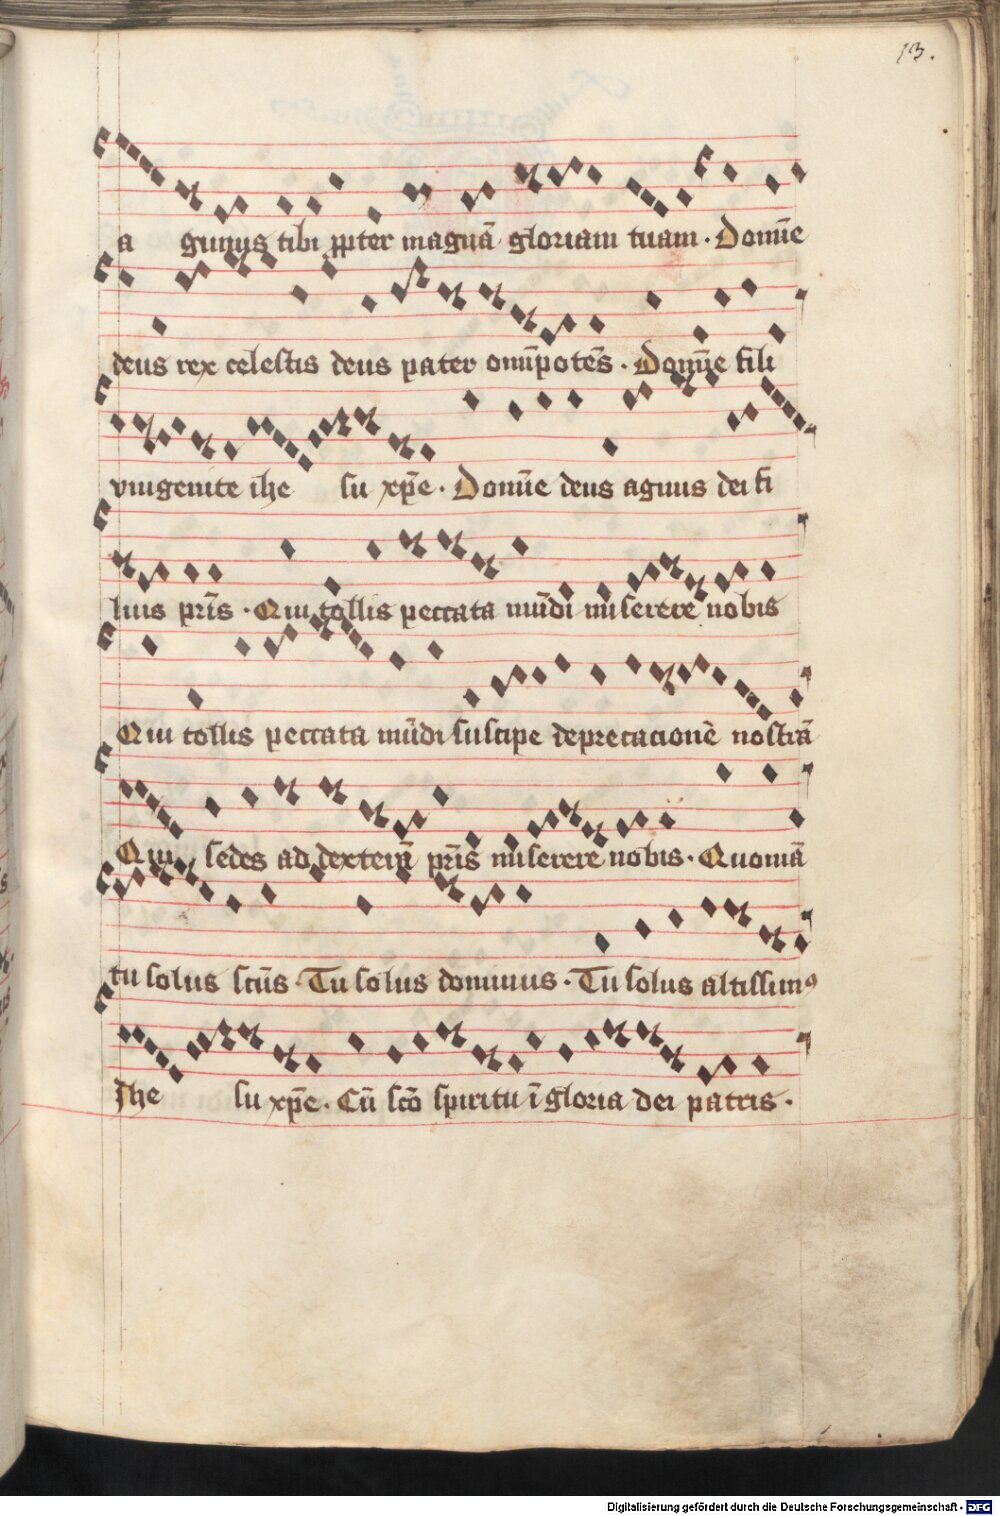 13.
a gimus tibi ꝓpter magnā gloriam tuam. Domīe
deus rex celestis deus pater omīpotēs. Domīe fili
vnigenite ihe su xp̄e. Domīe deus agnus dei fi
lius pr̄is. Qui tollis peccata mūdi miserere nobis
Qui tollis peccata mūdi suscipe deprecacionē nostrā
Qui sedes ad dexterā pr̄is miserere nobis. Quoniā
tu solus sc̄us. Tu solus dominus. Tu solus altissimꝰ
Jhe su xp̄e. Cū sc̄o spiritu ī gloria dei patris.
Digitalisierung gefördert durch die Deutsche Forschungsgemeinschaft - DFG